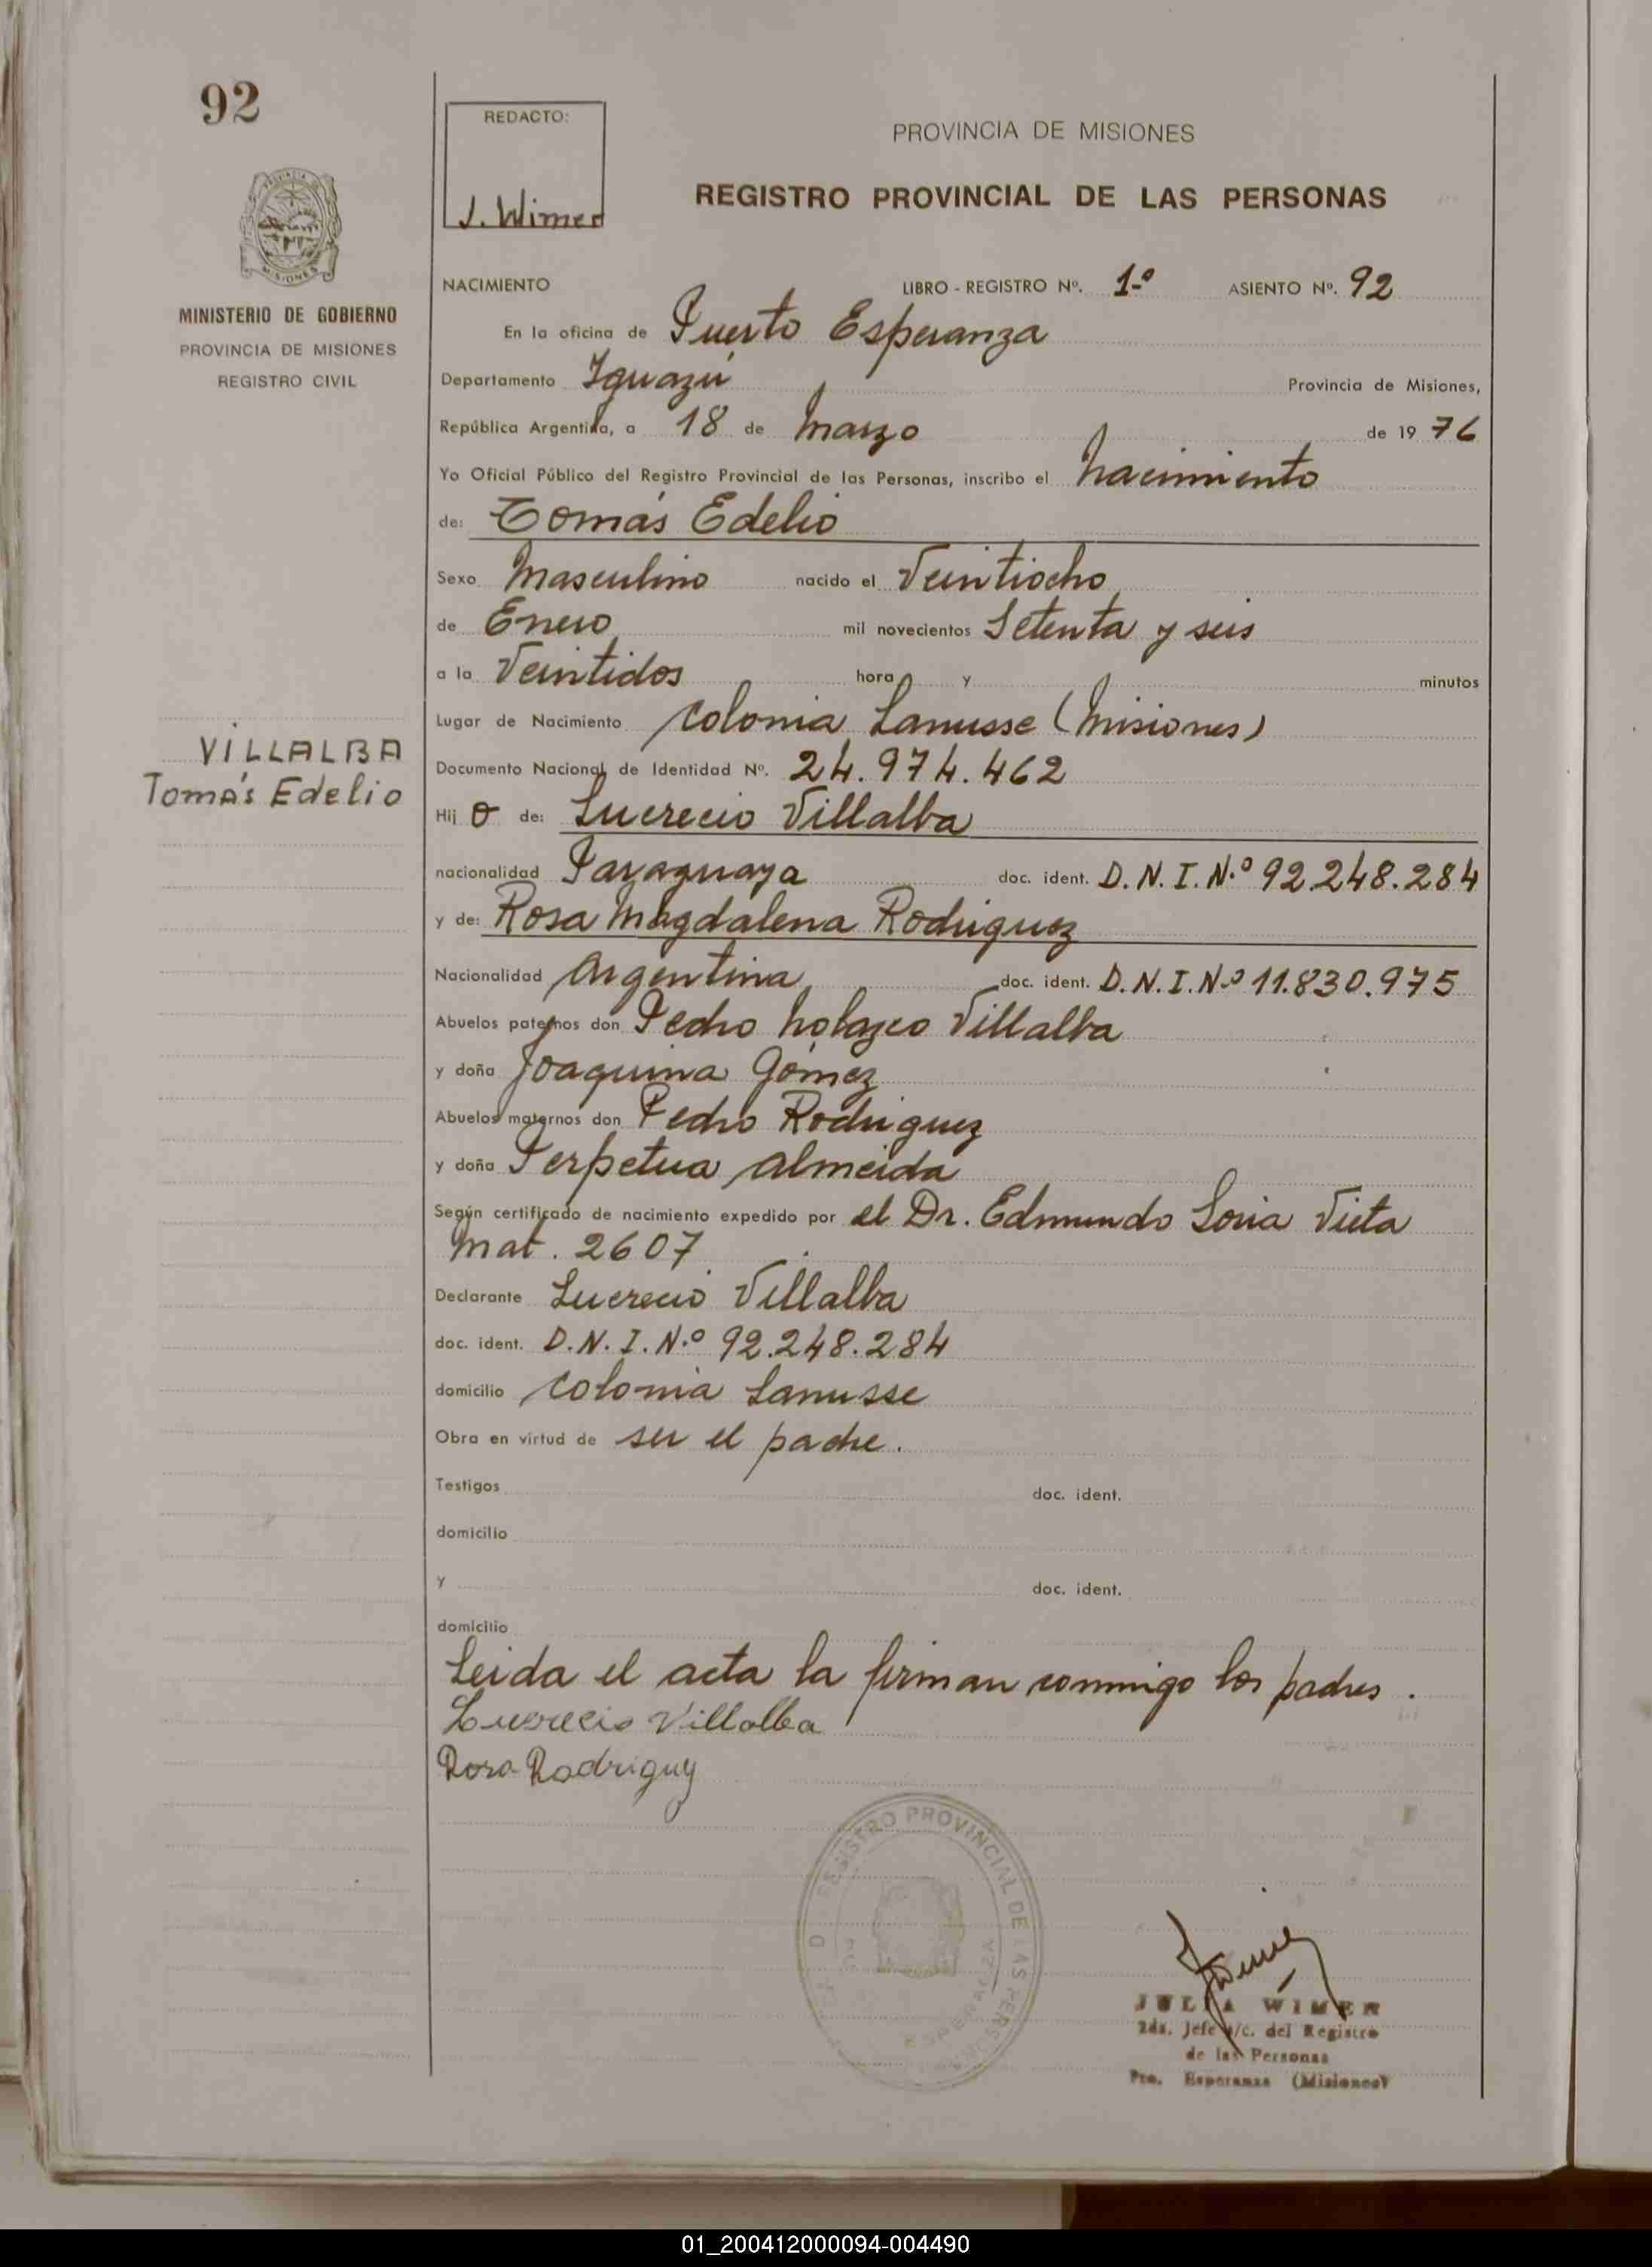 92
REDACTO:
J. Wimer
PROVINCIA DE MISIONES
REGISTRO PROVINCIAL DE LAS PERSONAS
MISIONES
MINISTERIO DE GOBIERNO
PROVINCIA DE MISIONES
REGISTRO CIVIL
NACIMIENTO LIBRO - REGISTRO Nº. 1-º ASIENTO Nº. 92
En la oficina de Puerto Esperanza
Departamento Iguazú Provincia de Misiones,
República Argentina, a 18 de Marzo de 19 76
Yo Oficial Público del Registro Provincial de las Personas, inscribo el Nacimiento
de: Tomás Edelio
Sexo Masculino nacido el Veintiocho
de Enero mil novecientos Setenta y seis
a la Veintidos hora y minutos
Lugar de Nacimiento Colonia Lanusse (Misiones)
VILLALBA
Tomás Edelio
Documento Nacional de Identidad Nº. 24.974.462
Hij o de: Lucrecio Villalba
nacionalidad Paraguaya doc. ident. D.N.I.N.º 92.248.284
y de: Rosa Magdalena Rodriguez
Nacionalidad Argentina doc. ident. D.N.I.N.º 11.830.975
Abuelos paternos don Pedro Nolazco Villalba
y doña Joaquina Gómez
Abuelos maternos don Pedro Rodriguez
y doña Perpetua Almeida
Según certificado de nacimiento expedido por el Dr. Edmundo Soria Vieta
Mat. 2607
Declarante Lucrecio Villalba
doc. ident. D.N.I.N.º 92.248.284
domicilio Colonia Lanusse
Obra en virtud de ser el padre.
Testigos doc. ident.
domicilio
y doc. ident.
domicilio
Leida el acta la firman conmigo los padres.
Lucrecio Villalba
Rosa Rodriguez
REGISTRO PROVINCIAL DE LAS PERSONAS
ESPERANZA
JULIA WIMER
2da. Jefe a/c. del Registro
de las Personas
Pto. Esperanza (Misiones)
01_200412000094-004490